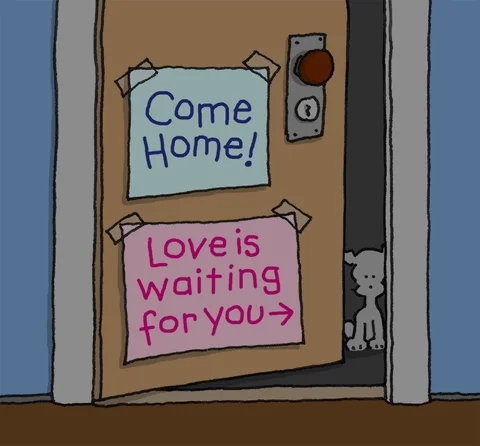 Come
Home!
Love is
waiting
for you→